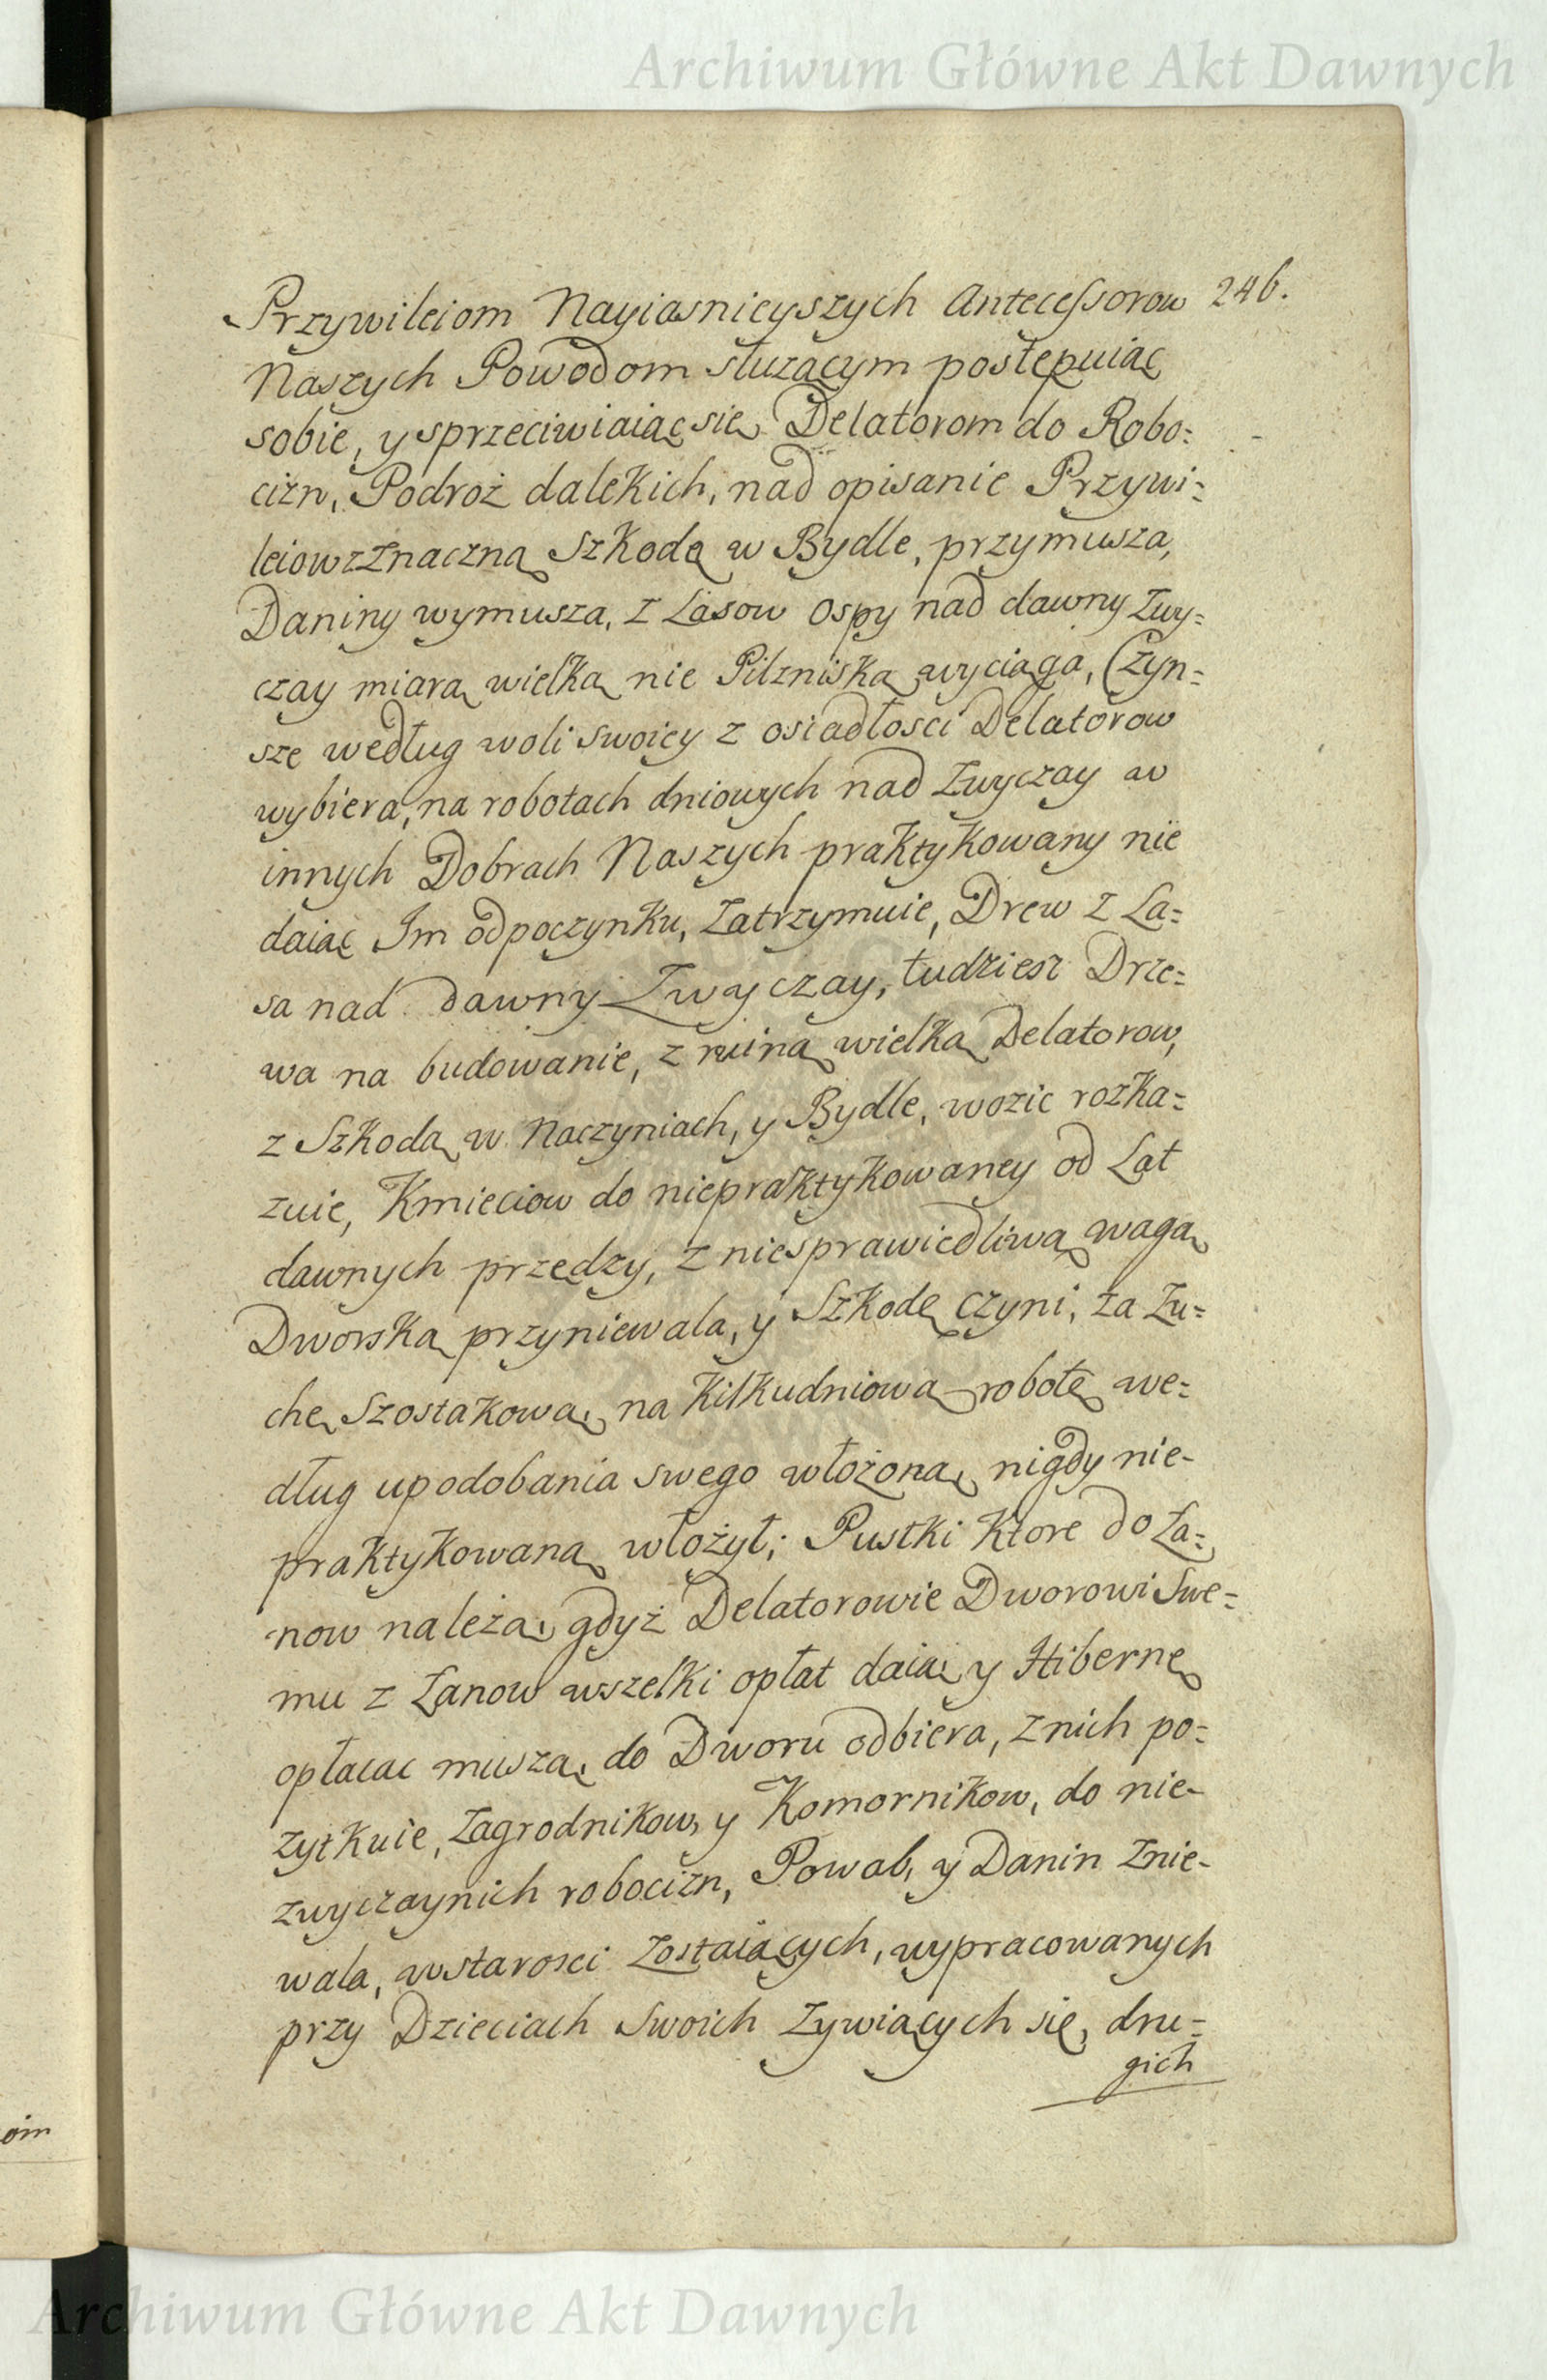 Archiwum Główne Akt Dawnych
Przywileiom Nayiasnieyszych Antecessorow 246.
Naszych Powodom słuzącym postępuiąc
sobie, y sprzeciwiaiąc się Delatorom do Robo=
cizn, Podroż dalekich, nad opisanie Przywi=
leiow z znaczną Szkodą w Bydle, przymusza,
Daniny wymusza, z Lasow Ospy nad dawny zwy=
czay miarą wielką nie Pilzniską wyciąga, Czyn=
sze według woli swoiey z osiadłosci Delatorow
wybiera, na robotach dniowych nad zwyczay w
innych Dobrach Naszych praktykowany nie
daiąc Im odpoczynku, zatrzymuie, Drew z La=
sa nad dawny Zwyczay, tudziesz Drze=
wa na budowanie, z ruiną wielką Delatorow,
z Szkodą w Naczyniach, y Bydle, wozic rozka=
zuie, Kmieciow do niepraktykowaney od Lat
dawnych przędzy, z niesprawiedliwą wagą
Dworską przyniewala, y Szkodę czyni, za Zu=
chę Szostakową, na kilkudniową robotę we=
dług upodobania swego włożoną, nigdy nie-
praktykowaną włożył; Pustki ktore do Ła=
now należą, gdyż Delatorowie Dworowi Swe=
mu z Łanow wszelki opłat daią, y Hibernę
opłacac muszą, do Dworu odbiera, z nich po=
zytkuie, Zagrodnikow, y Komornikow, do nie-
zwyczaynich robocizn, Powab, y Danin znie-
wala, w starosci zostaiących, wypracowanych
przy Dzieciach Swoich zywiących się, dru=
gich
oim
Archiwum Główne Akt Dawnych